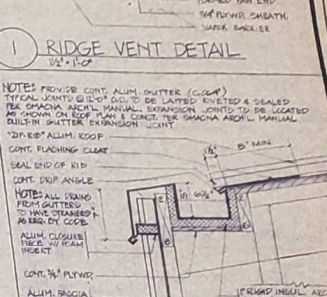 FORMED PAN END
3/4" PLYWD. SHEATH.
VAPOR BARRIER
1 RIDGE VENT DETAIL
1½" = 1'-0"
NOTE: PROVIDE CONT. ALUM. GUTTER
TYPICAL JOINTS @ 12'-0" O.C. TO BE LAPPED RIVETED & SEALED
PER SMACNA ARCH'L MANUAL. EXPANSION JOINTS TO BE LOCATED
AS SHOWN ON ROOF PLAN & CONST. PER SMACNA ARCH'L MANUAL
BUILT-IN GUTTER EXPANSION JOINT
"ZIP-RIB" ALUM. ROOF
CONT. FLASHING CLEAT
SEAL END OF RIB
CONT. DRIP ANGLE
NOTE: ALL DRAINS
FROM GUTTERS
TO HAVE STRAINERS
AS REQ. BY CODE
ALUM. CLOSURE
PIECE W/ FOAM
INSERT
CONT. ¾" PLYWD.
ALUM. FASCIA
5" MIN
1" RIGID INSUL.